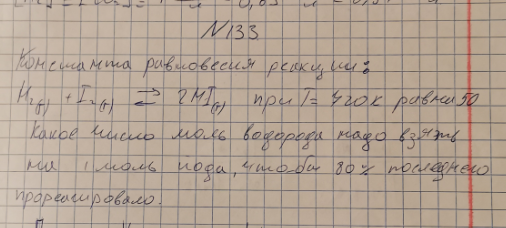 N133
Константа равновесия реакции:
H₂(г) + I₂(г) ⇄ 2HI(г) при T = 720к равна 50
Какое число моль водорода надо взять
на 1 моль иода, чтобы 80% последнего
прореагировало.